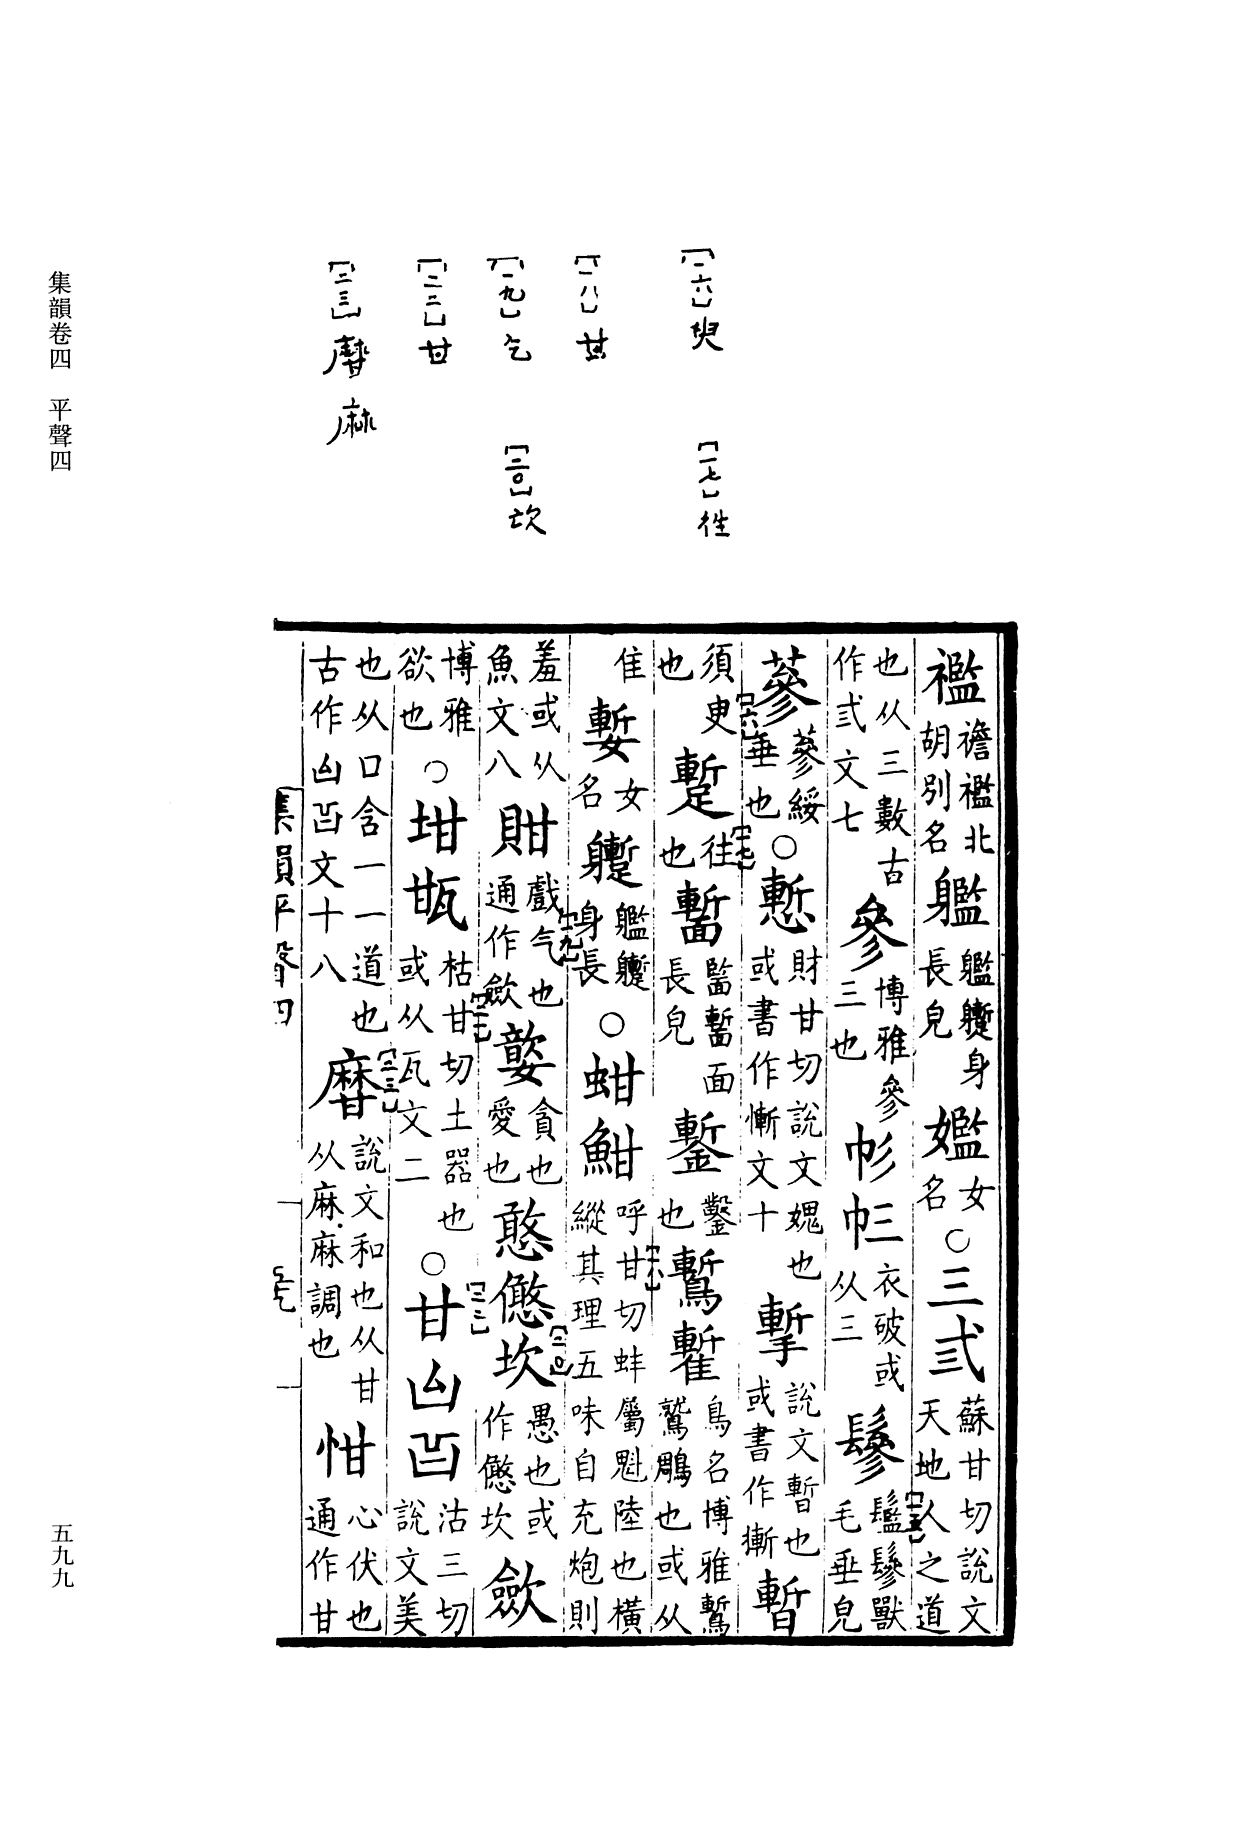 集韻卷四　平聲四
五九九
[一六]臾
[一七]徃
[一八]甚
[一九]乞
[二〇]坎
[二二]甘
[二三]麿麻
襤襜襤北胡別名䰐䰐軅身長皃㜮女名○三弎蘇甘切說文天地人之道
也从三數古作弎文七參博雅參三也㣌帴衣破或从三鬖[一五]鬛鬖獸毛垂皃
蔘蔘綏垂也○慙財甘切說文媿也或書作慚文十摲說文暫也或書作摲暫
須臾[一六]也蹔徃[一七]也䭕䭕面長皃鏨鑿也鷙䧯鳥名博雅鷙鷲鵰也或从
隹嬱女名軅身長○蚶魽呼甘切[一八]蚌屬魁陸也橫縱其理五味自充炮則
羞或从魚文八䝱戲气[一九]也通作歛㜝貪也愛也憨㦗坎[二〇]愚也或作㦗坎歛
博雅欲也○坩㽏枯甘[二一]切土器也或从瓦文二○甘[二二]凵㫔沽三切說文美
也从口含一一道也古作凵㫔文十八䃫[二三]說文和也从甘从麻麻調也㤌心伏也通作甘
集韻平聲四